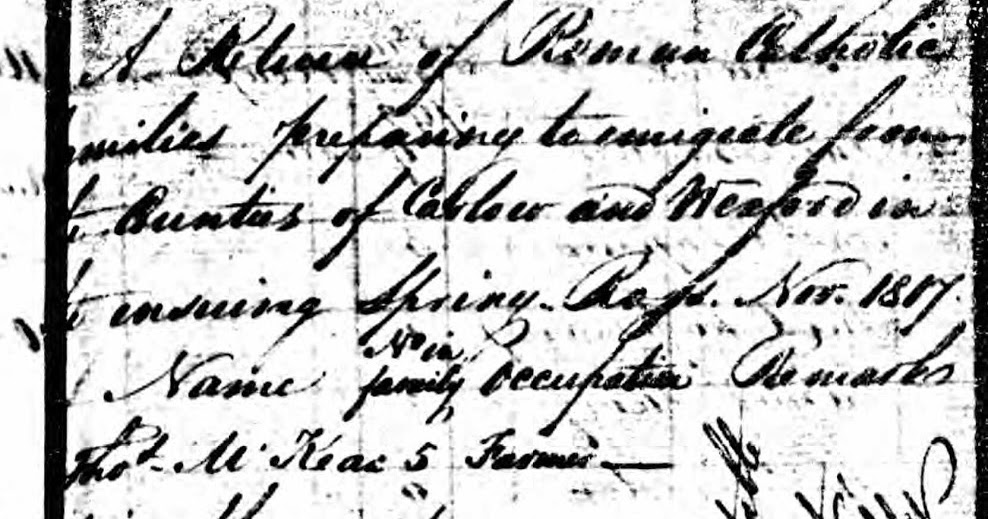 A Return of Roman Catholic
families preparing to emigrate from
the Counties of Carlow and Wexford in
the ensuing Spring. Ross. Nov. 1817.
Name No in family Occupation Remarks
Thos. McKeac 5 Farmer —